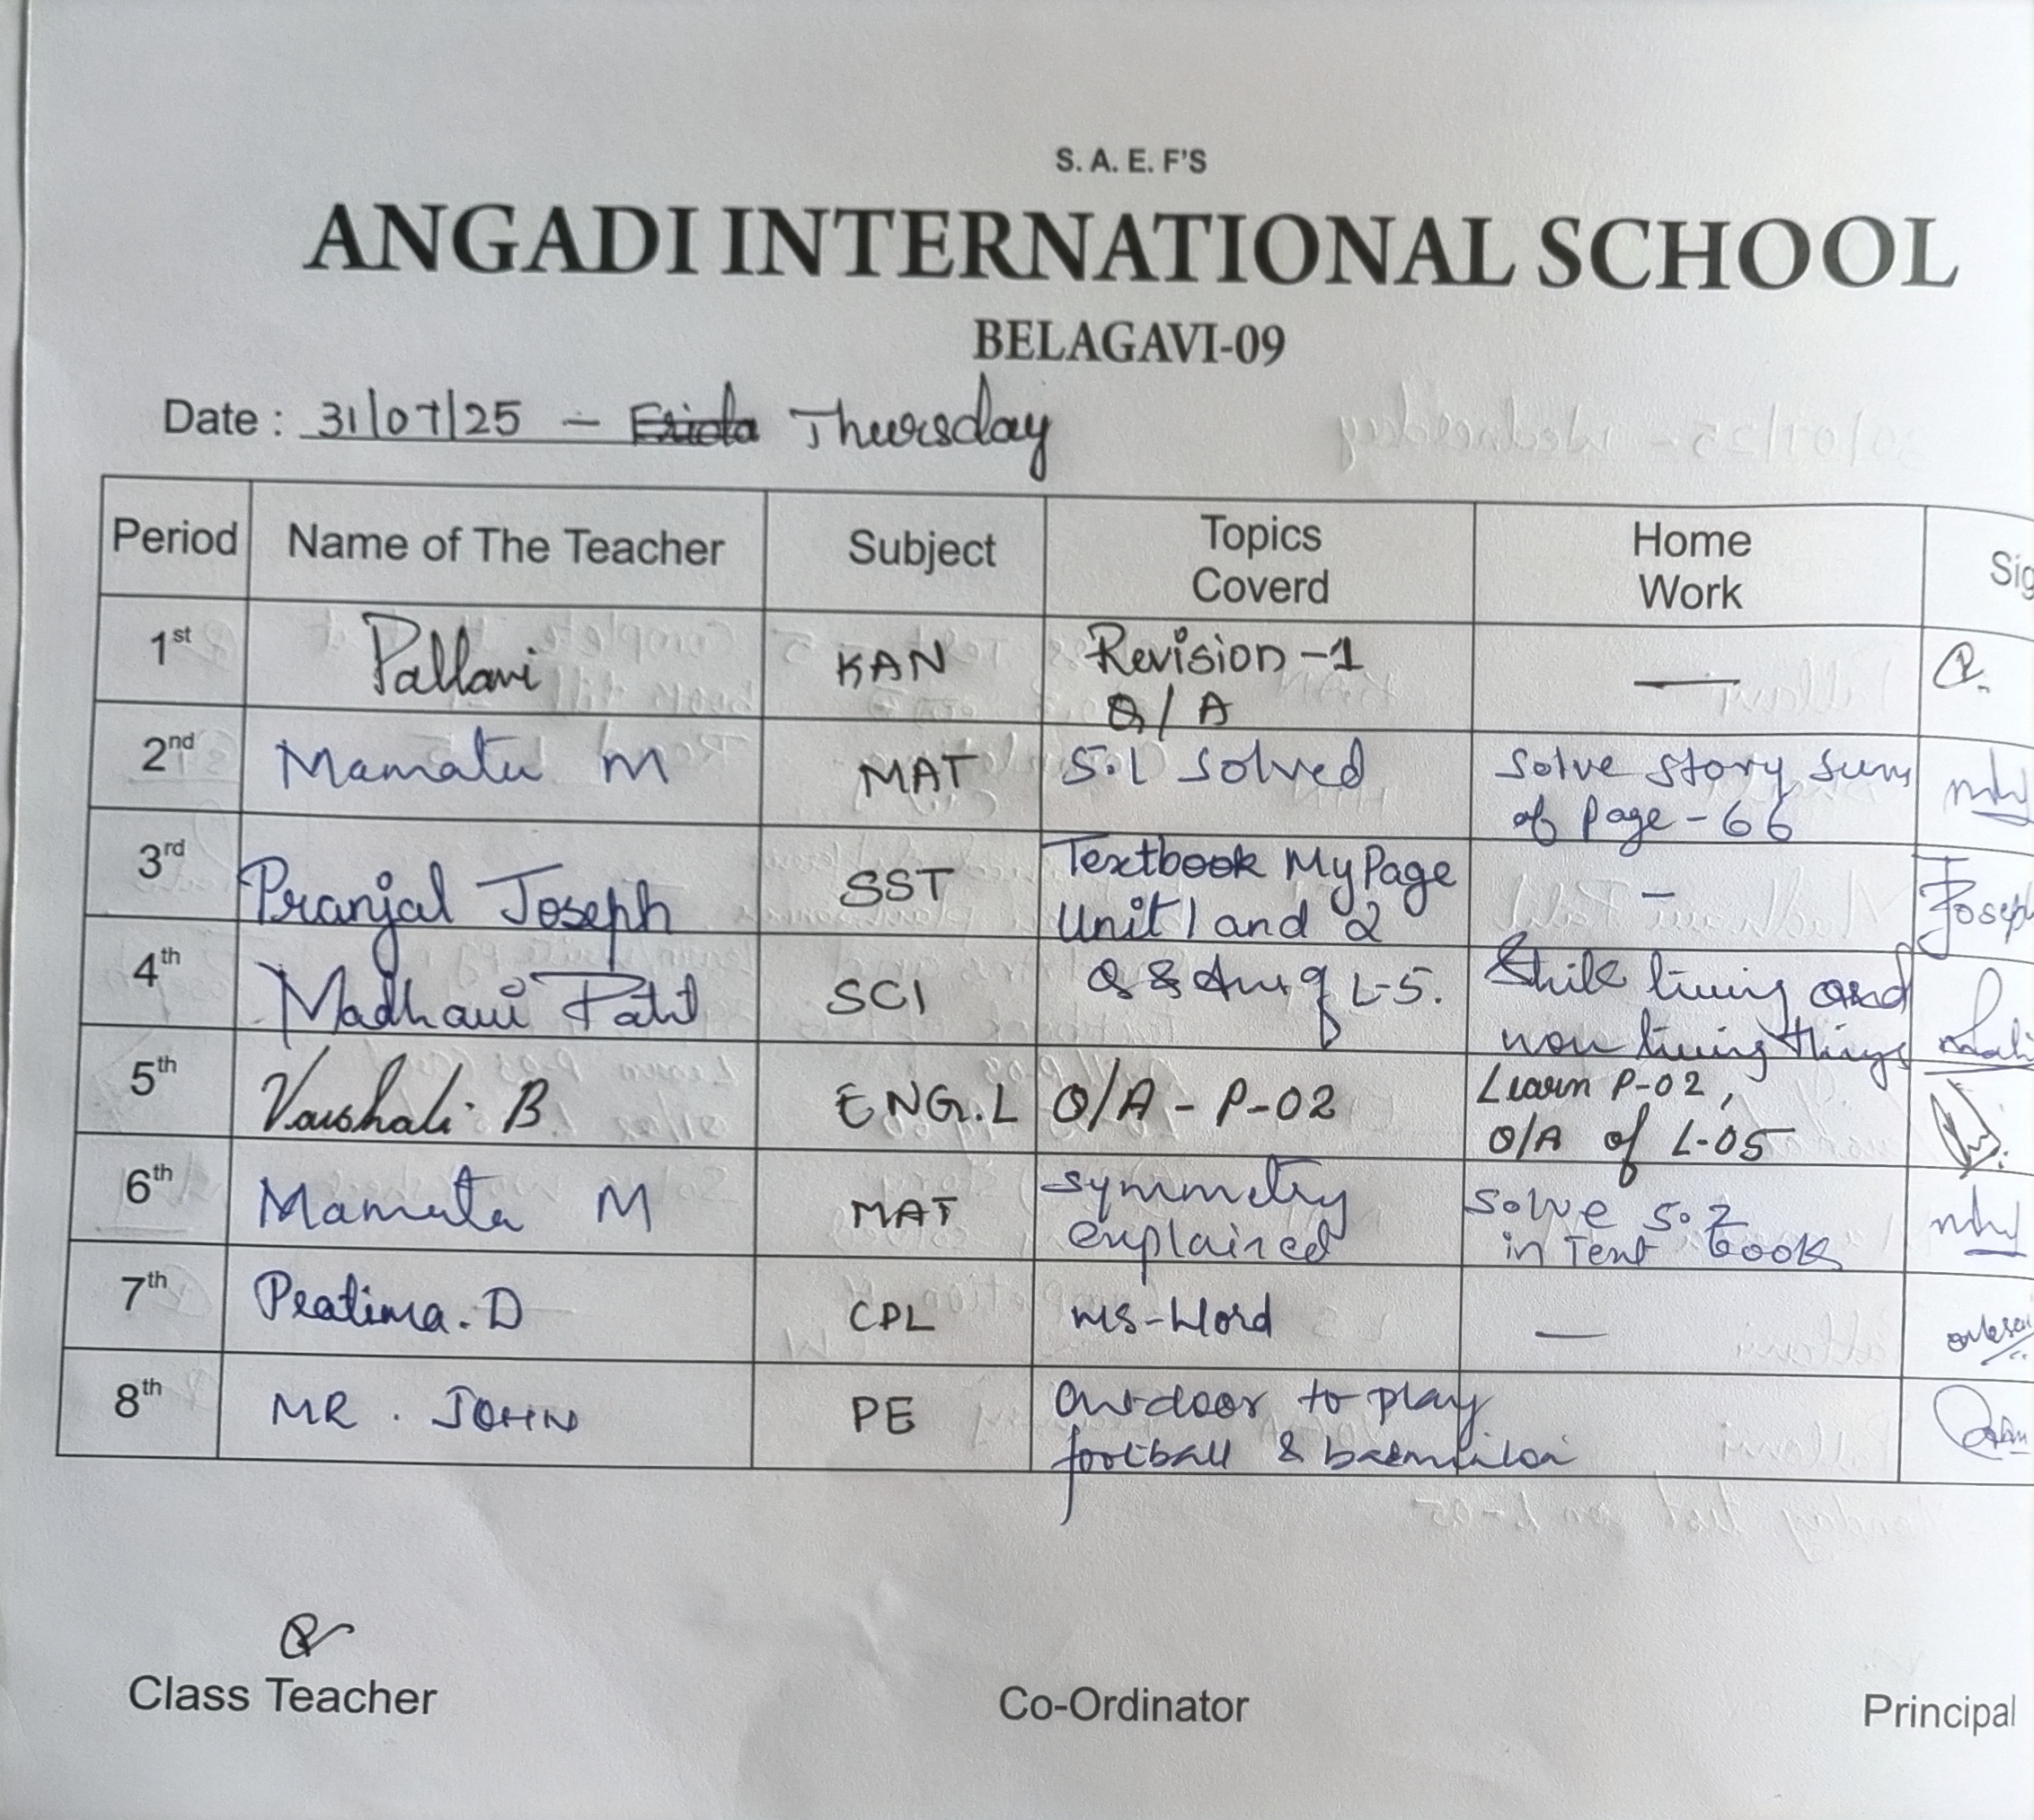 S. A. E. F'S
ANGADI INTERNATIONAL SCHOOL
BELAGAVI-09
Date : 31/07/25 - Thursday
Period Name of The Teacher Subject Topics Coverd Home Work Sig
1st Pallavi KAN Revision-1 —
Q/A
2nd Mamata M MAT 5.1 solved Solve story sums
of Page-66
3rd Pranjal Joseph SST Textbook My Page -
Unit 1 and 2 Joseph
4th Madhavi Patil SCI Q & Ans of L-5. living and
non living things
5th Vaishali. B ENG.L Q/A - P-02 Learn P-02,
Q/A of L-05
6th Mamata M MAT symmetry Solve 5.2
explained in Text book
7th Pratima. D CPL MS-Word —
8th MR. JOHN PE Outdoor to play
football &
Class Teacher Co-Ordinator Principal